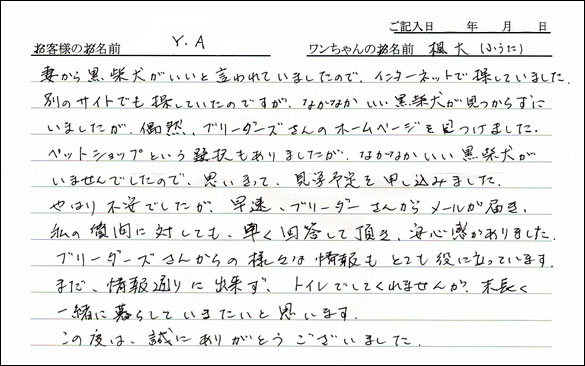 ご記入日　　年　　月　　日
お客様のお名前　Y.A　ワンちゃんのお名前　楓太(ふうた)
妻から黒柴犬がいいと言われていましたので、インターネットで探していました。
別のサイトでも探していたのですが、なかなかいい黒柴犬が見つからずに
いましたが、偶然、ブリーダーズさんのホームページを見つけました。
ペットショップという選択もありましたが、なかなかいい黒柴犬が
いませんでしたので、思いきって、見学予定を申し込みました。
やはり不安でしたが、早速、ブリーダーさんからメールが届き、
私の質問に対しても、早く回答して頂き、安心感がありました。
ブリーダーズさんからの様々な情報もとても役に立っています。
まだ、情報通りに出来ず、トイレでしてくれませんが、末長く
一緒に暮らしていきたいと思います。
この度は、誠にありがとうございました。